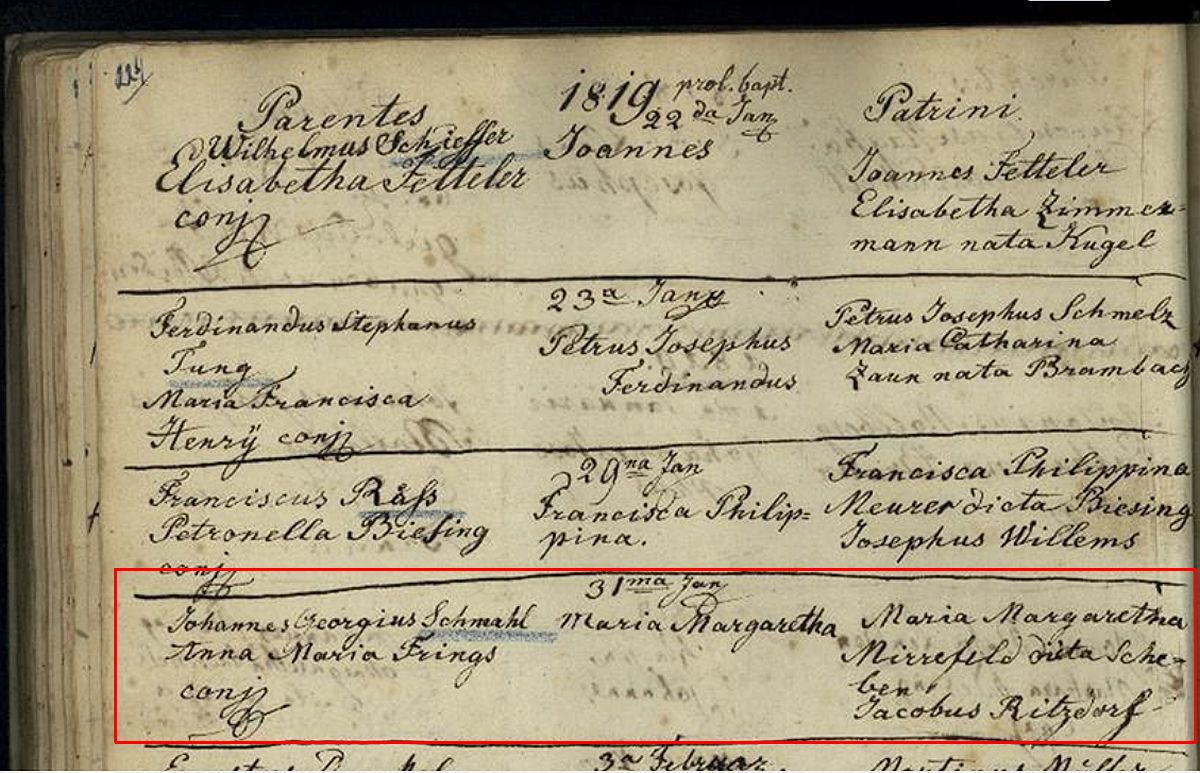 224
1819 prol. bapt.
Parentes 22da Jan Patrini.
Wilhelmus Schieffer Joannes
Elisabetha Fetteler Joannes Fetteler
conj Elisabetha Zimmer-
mann nata Kugel
23a Jany
Ferdinandus Stephanus Petrus Josephus Petrus Josephus Schmelz
Jung Ferdinandus Maria Catharina
Maria Francisca Zaun nata Brambach
Henrÿ conj
29na Jan Francisca Philippina
Franciscus Räß Francisca Philip= Meurer dicta Biesing
Petronella Biesing pina. Josephus Willems
conj
31ma Jan
Johannes Georgius Schmahl Maria Margaretha Maria Margaretha
Anna Maria Frings Mirrefeld dicta Sche=
conj ben
Jacobus Ritzdorf
3a Februar. Martinus Müller